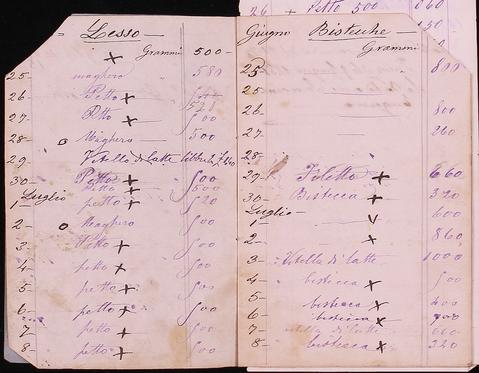 26 + Petto 500
Lesso —
Grammi 500 -
25 - maghero 580
26 - Petto +
27 - Ptto + 500
28 - Maghero 500
29 - Vitello di latte
30 - Petto + 500
petto + 500
Luglio
1 petto + 520
2 - Maghero 500
3 Petto + 500
4 petto + 500
5 petto + 500
6 - petto + 500
7 petto + 500
8 - petto + 500
Giugno Bistecche —
Grammi
25 - 800
25 -
26 - 800
27 - 260
28 -
29 - Filetto + 660
30 - Bistecca + 320
Luglio -
1 - 600
2 - x 860
3 - Vitella di latte 1000
4 - bistecca x 500
5 - bistecca x 400
6 - bistecca x 700
7 - vitella di latte 600
8 - bistecca x 320